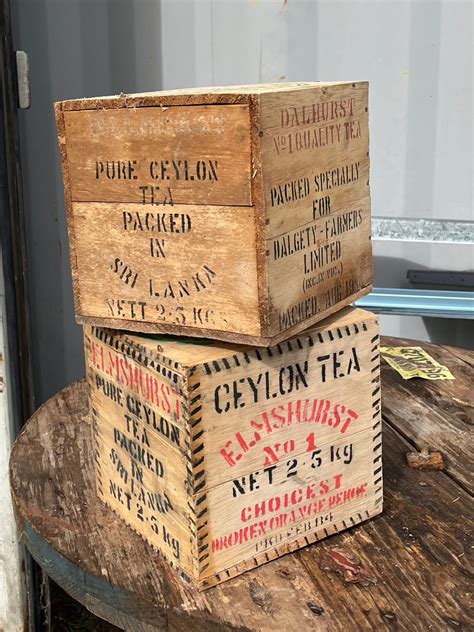 DALHURST
PURE CEYLON
TEA
PACKED
IN
SRI LANKA
NETT 2·5 KG.
DALHURST
No 1 QUALITY TEA
PACKED SPECIALLY
FOR
DALGETY-FARMERS
LIMITED
ELMSHURST
PURE CEYLON
TEA
PACKED IN
SRI LANKA
NETT 2·5 Kg.
CEYLON TEA
ELMSHURST
No 1
NETT 2·5 Kg
CHOICEST
BROKEN ORANGE PEKOE.